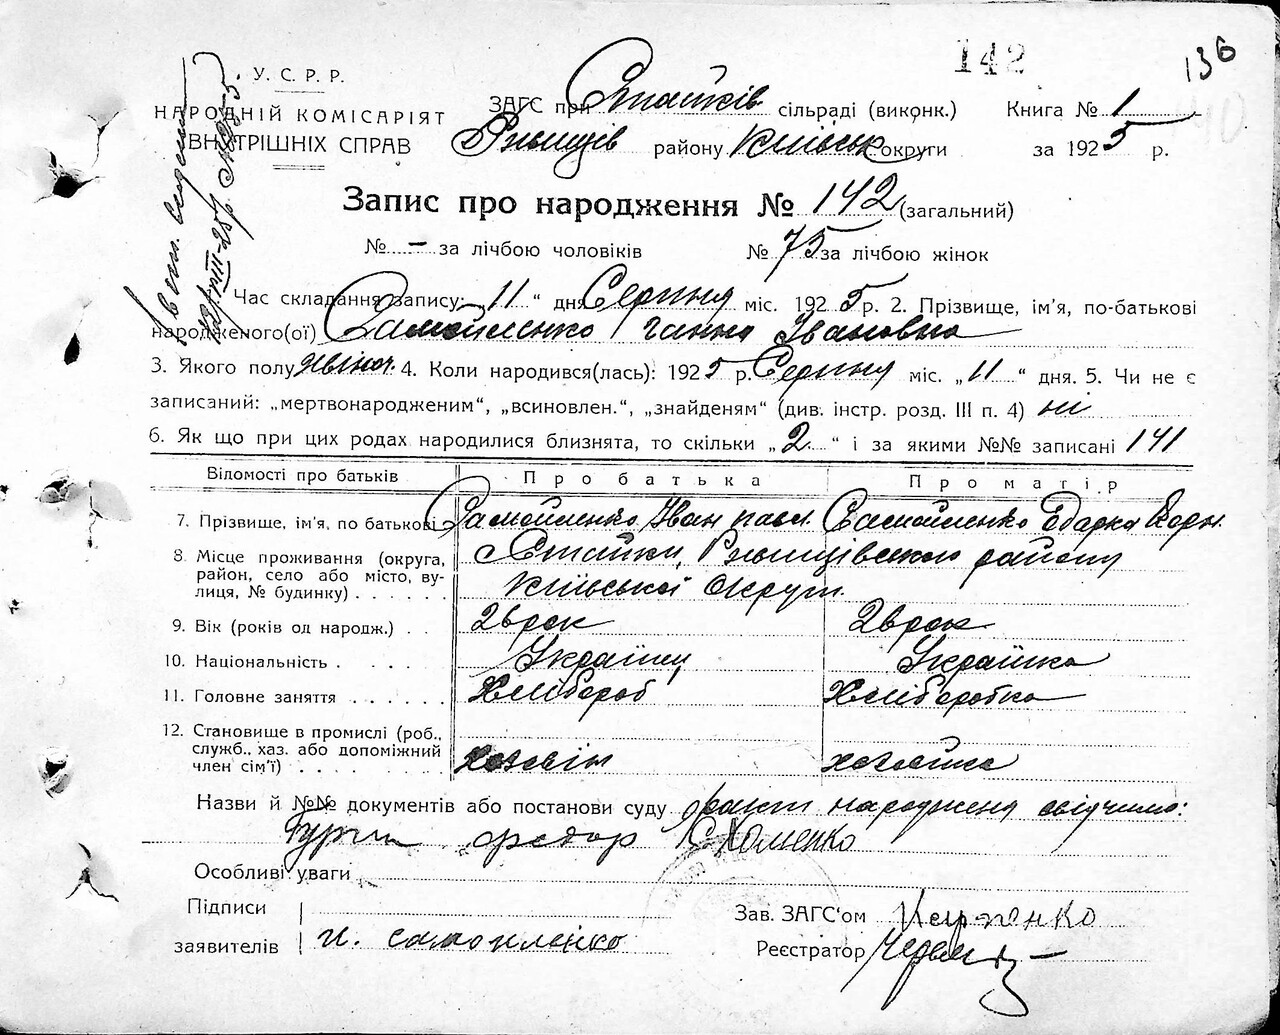 142
136
У. С. Р. Р.
НАРОДНІЙ КОМІСАРІЯТ
ВНУТРІШНІХ СПРАВ
ЗАГС при Стайків сільраді (виконк.) Книга № 1
Ржищів району Київськ округи за 1925 р.
Запис про народження № 142 (загальний)
№ – за лічбою чоловіків № 75 за лічбою жінок
Час складання запису: „11“ дня Серпня міс. 1925 р. 2. Прізвище, ім'я, по-батькові
народженого(ої) Самойленко Ганна Івановна
3. Якого полу жіноч. 4. Коли народився(лась): 1925 р. Серпня міс. „11“ дня. 5. Чи не є
записаний: „мертвонародженим“, „всиновлен.“, „знайденям“ (див. інстр. розд. III п. 4) ні
6. Як що при цих родах народилися близнята, то скільки „2“ і за якими №№ записані 141
Відомості про батьків Про батька Про матір
7. Прізвище, ім'я, по батькові Самойленко Іван Павл. Самойленко Одарка
8. Місце проживання (округа, район, село або місто, ву-лиця, № будинку) Стайки, Ржищівського району
Київської Округи.
9. Вік (років од народж.) 28 рок 28 рок
10. Національність Українц Українка
11. Головне заняття Хлібороб Хліборобка
12. Становище в промислі (роб., служб., хаз. або допоміжний член сім'ї) хозяїн хозяйка
Назви й №№ документів або постанови суду факт народженя свідчимо:
С. Хоменко
Особливі уваги
Підписи
заявителів И. самойленко
Зав. ЗАГС'ом
Реєстратор